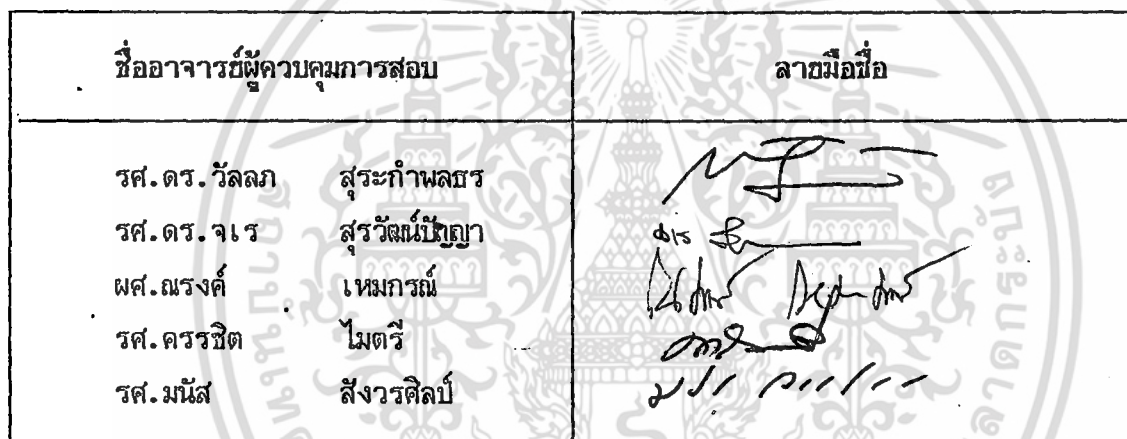 ชื่ออาจารย์ผู้ควบคุมการสอบ ลายมือชื่อ
รศ.ดร.วัลลภ สุระกำพลธร
รศ.ดร.จเร สุรวัฒน์ปัญญา
ผศ.ณรงค์ เหมกรณ์
รศ.ครรชิต ไมตรี
รศ.มนัส สังวรศิลป์